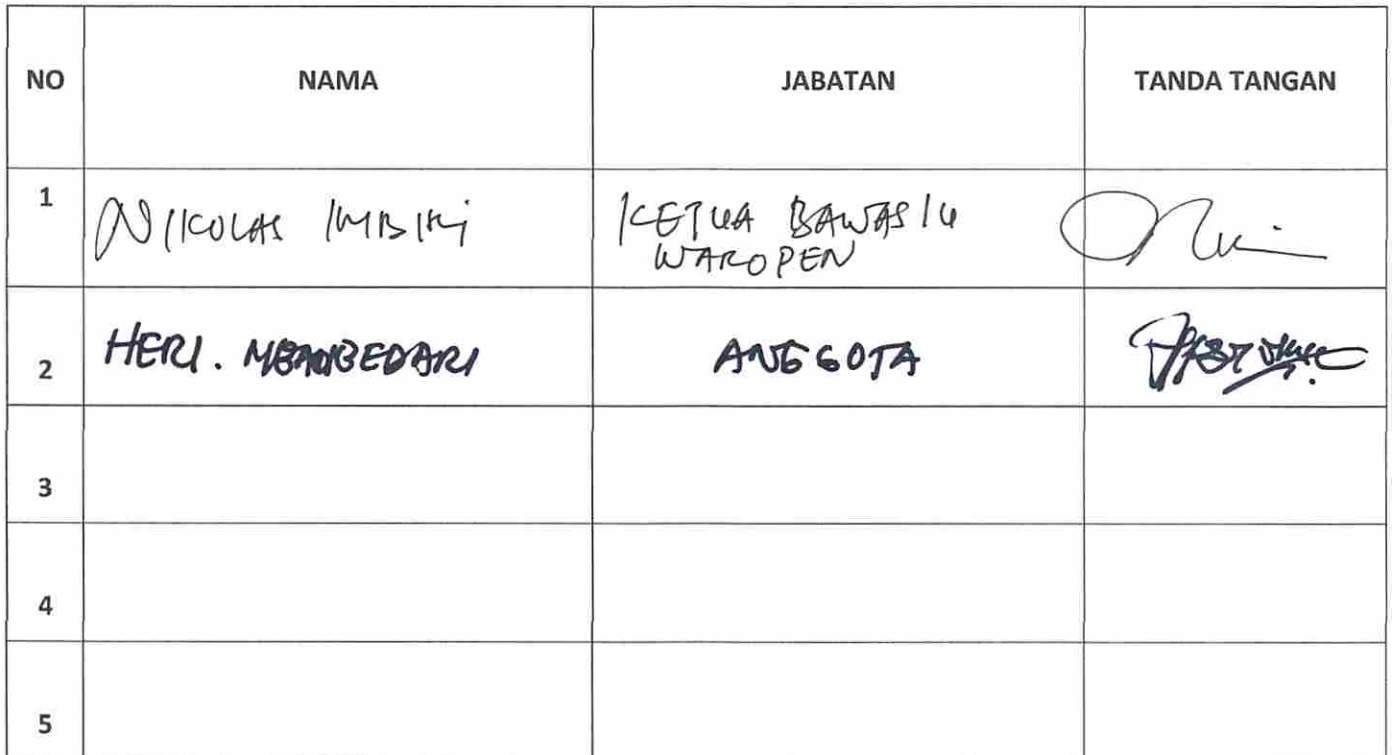 NO NAMA JABATAN TANDA TANGAN
1 NIKOLAS IMBIRI KETUA BAWASLU
WAROPEN
2 HERI. ANGGOTA
3
4
5